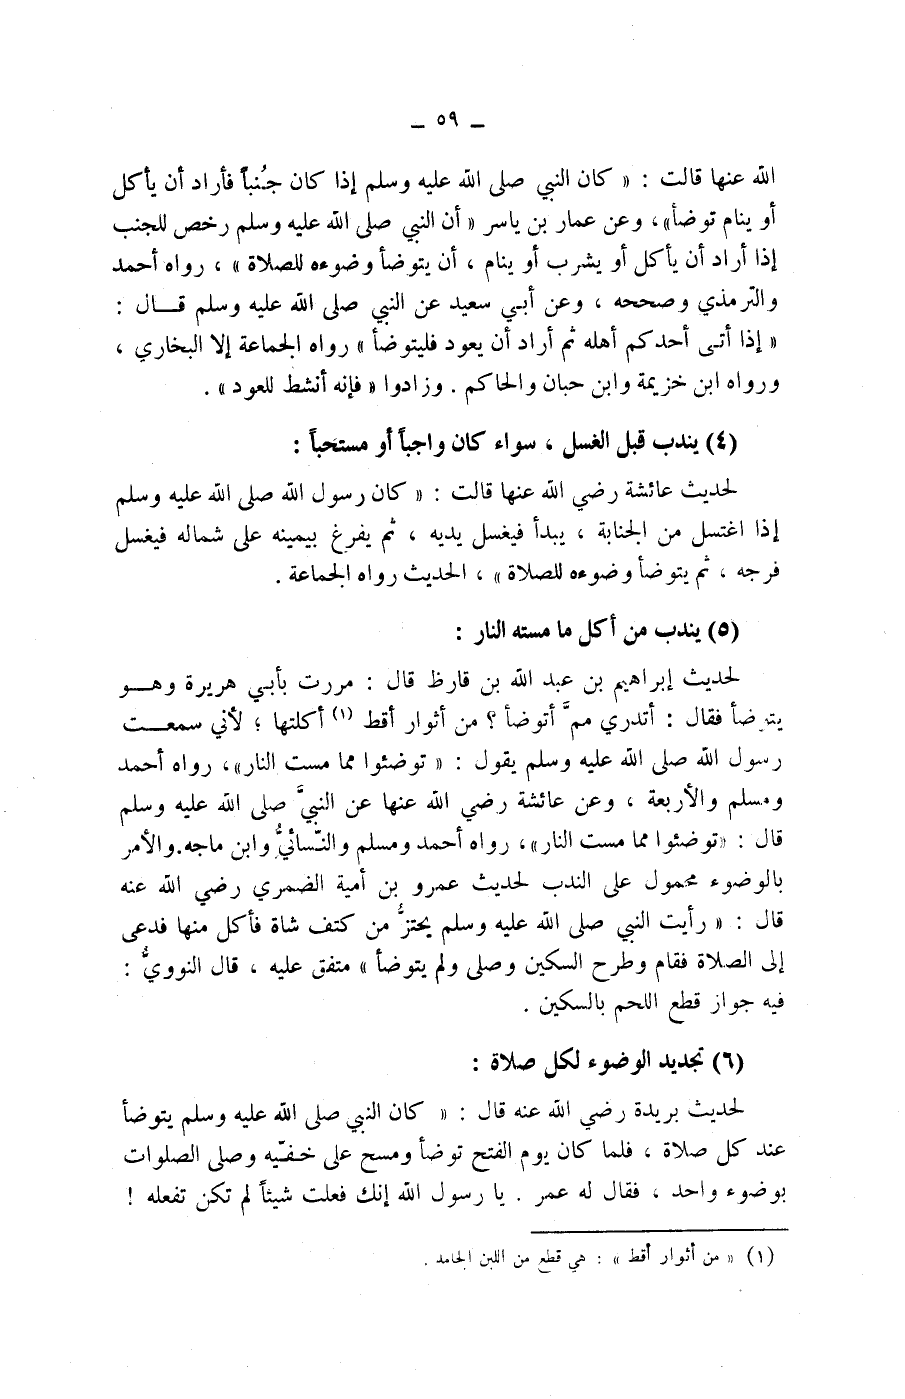 ــ ٥٩ ــ
الله عنها قالت : « كان النبي صلى الله عليه وسلم إذا كان جُنباً فأراد أن يأكل
أو ينام توضأ»، وعن عمار بن ياسر « أن النبي صلى الله عليه وسلم رخص للجنب
إذا أراد أن يأكل أو يشرب أو ينام ، أن يتوضأ وضوءه للصلاة » ، رواه أحمد
والترمذي وصححه ، وعن أبي سعيد عن النبي صلى الله عليه وسلم قـــال :
« إذا أتى أحدكم أهله ثم أراد أن يعود فليتوضأ » رواه الجماعة إلا البخاري ،
ورواه ابن خزيمة وابن حبان والحاكم . وزادوا « فإنه أنشط للعود » .
(٤) يندب قبل الغسل ، سواء كان واجباً أو مستحباً :
لحديث عائشة رضي الله عنها قالت : « كان رسول الله صلى الله عليه وسلم
إذا اغتسل من الجنابة ، يبدأ فيغسل يديه ، ثم يفرغ بيمينه على شماله فيغسل
فرجه ، ثم يتوضأ وضوءه للصلاة » ، الحديث رواه الجماعة .
(٥) يندب من أكل ما مسته النار :
لحديث إبراهيم بن عبد الله بن قارظ قال : مررت بأبي هريرة وهـــو
يتوضأ فقال : أتدري ممَّ أتوضأ ؟ من أثوار أقط (١) أكلتها ؛ لأني سمعـــت
رسول الله صلى الله عليه وسلم يقول : « توضئوا مما مست النار»، رواه أحمد
ومسلم والأربعة ، وعن عائشة رضي الله عنها عن النبيَّ صلى الله عليه وسلم
قال : «توضئوا مما مست النار»، رواه أحمد ومسلم والنّسائيُّ وابن ماجه.والأمر
بالوضوء محمول على الندب لحديث عمرو بن أمية الضمري رضي الله عنه
قال : « رأيت النبي صلى الله عليه وسلم يحتزُّ من كتف شاة فأكل منها فدعى
إلى الصلاة فقام وطرح السكين وصلى ولم يتوضأ » متفق عليه ، قال النوويُّ :
فيه جواز قطع اللحم بالسكين .
(٦) تجديد الوضوء لكل صلاة :
لحديث بريدة رضي الله عنه قال : « كان النبي صلى الله عليه وسلم يتوضأ
عند كل صلاة ، فلما كان يوم الفتح توضأ ومسح على خفّيه وصلى الصلوات
بوضوء واحد ، فقال له عمر . يا رسول الله إنك فعلت شيئاً لم تكن تفعله !
(١) « من أثوار أقط » : هي قطع من اللبن الجامد .